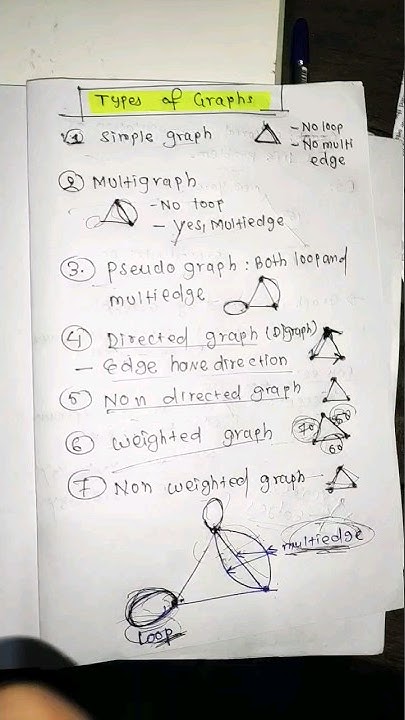 Types of Graphs
① Simple graph
- No loop
- No multi
edge
② Multigraph
- No loop
- yes, Multiedge
③. Pseudo graph : Both loop and
multiedge
④ Directed graph (Digraph)
- Edge have direction
⑤ Non directed graph
⑥ weighted graph
70 50
60
⑦ Non weighted graph
multiedge
Loop